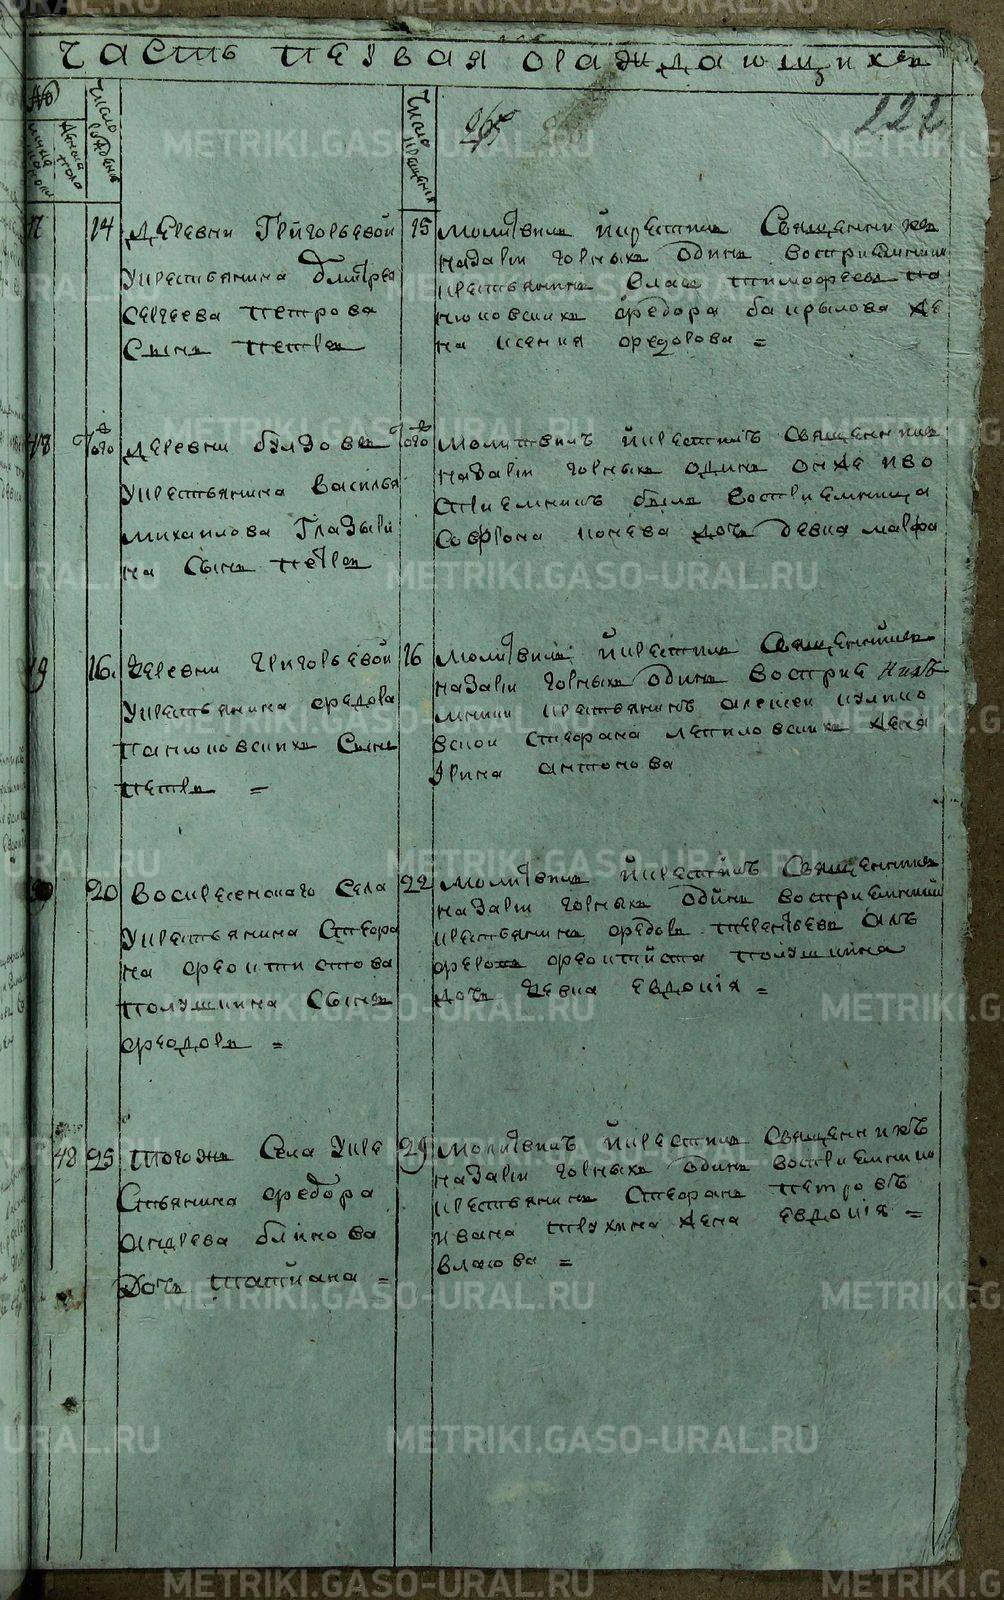 часть первая ораждающихся
№
число рождения
число крещения
мужеска пола
женска пола
265
222
17
14
деревни Григорьевой
крестьянина дмитрея
сергеева петрова
Сынъ петръ
15
молитвилъ икрестилъ Священникъ
назари черныхъ одинъ восприемники
крестьянинъ власъ тимофеевъ па
нюковскихъ федора
жена ксения федорова =
18
того ж
деревни
крестьянина василья
михаилова Глазыри
на Сынъ петръ
того ж
молитвилъ икрестилъ священникъ
назари черныхъ одинъ онже иво
сприемникъ былъ восприемница
дочь девка марфа
19
16.
деревни григорьевой
крестьянина федора
панюковскихъ Сынъ
петръ =
16
молитвилъ икрестилъ Священникъ
назари черныхъ одинъ восприе никъ
мники крестьянинъ алексеи
Стефана жена
Ірина антонова
20
20
воскресенского села
крестьянина Стефа
на феоктистова
полушкина Сынъ
феодоръ =
22
молитвилъ икрестилъ Священникъ
назари черныхъ одинъ восприемники
крестьянинъ федоръ терентьевъ ал
феровъ феоктиста полушкина
дочь девка евдокия =
48
25
тогожъ Села кре
стьянина федора
андреева блинова
Дочь татиана =
29
молитвилъ икрестилъ священникъ
назари черныхъ одинъ восприемники
крестьянинъ Стефанъ петровъ
ивана трухина жена евдокия =
власова =
METRIKI.GASO-URAL.RU